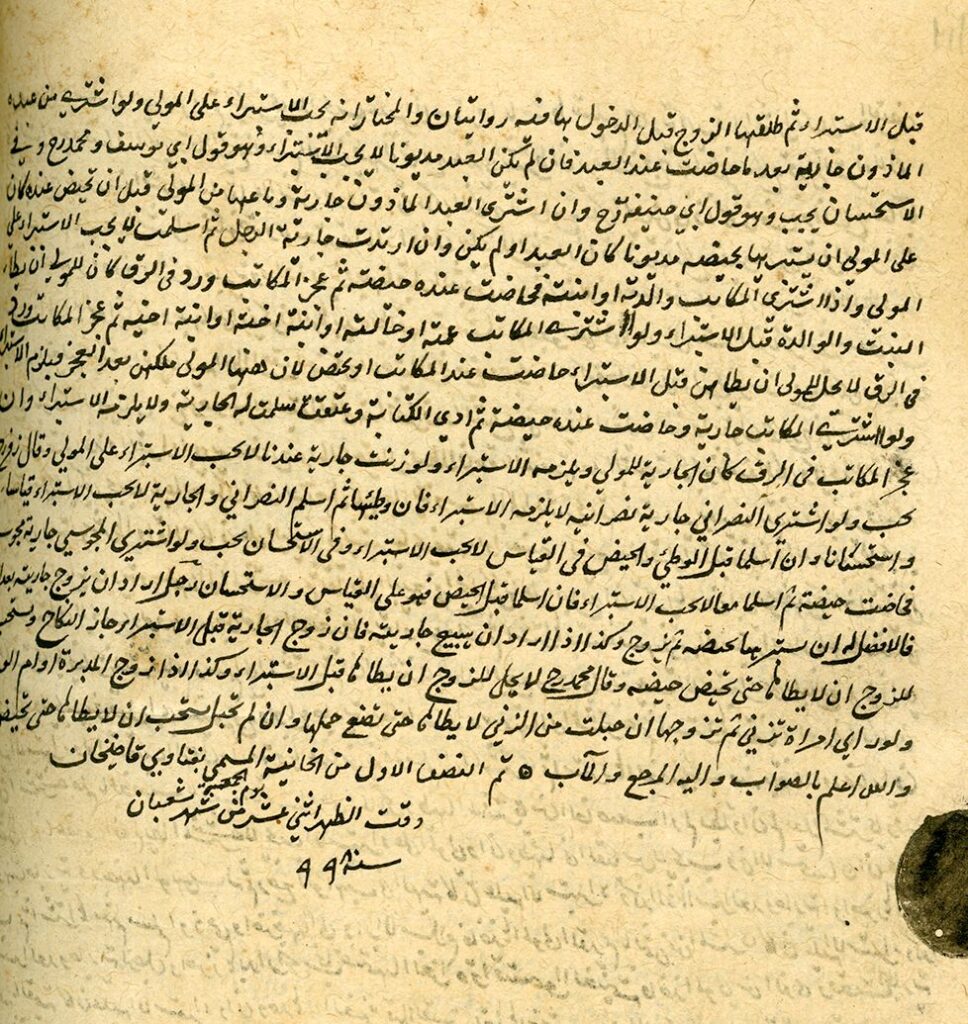 قبل الاستبراء ثم طلقها الزوج قبل الدخول بها ففيه روايتان والمختار انه يجب الاستبراء على المولي ولو اشترى من عبده
الماذون جارية بعد ما حاضت عند العبد فان لم يكن العبد مديونا لا يجب الاستبراء وهو قول ابي يوسف و محمد رح وفي
الاستحسان يجب وهو قول ابي حنيفه رح وان اشترى العبد الماذون جارية وباعها من المولى قبل ان تحيض عنده كان
على المولى ان يستبريها بحيضه مديونا كان العبد او لم يكن وان ارتدت جارية الرجل ثم اسلمت لا يجب الاستبراء على
المولى واذا اشترى المكاتب والدته او ابنته فحاضت عنده حيضة ثم عجز المكاتب ورد في الرق كان للمولى ان يطا
البنت والوالدة قبل الاستبراء ولو اشترى المكاتب عمته او خالته او ابنة اخته او ابنة اخيه ثم عجز المكاتب ورد
في الرق لا يحل للمولى ان يطا هن قبل الاستبراء حاضت عند المكاتب او لم تحض لان ههنا المولى ملكهن بعد العجز فيلزم الاستبراء
ولو اشترى المكاتب جارية وحاضت عنده حيضة ثم ادي الكتابة وعتق سلمت له الجارية ولا يلزمه الاستبراء وان
عجز المكاتب في الرق كان الجارية للمولي ويلزمه الاستبراء ولو زنت جارية عندنا لا يجب الاستبراء على المولي وقال زفر رح
يجب ولو اشترى النصراني جارية نصرانيه لا يلزمه الاستبراء فان وطيها ثم اسلم النصراني والجارية لا يجب الاستبراء قياسا
واستحسانا وان اسلما قبل الوطي والحيض في القياس لا يجب الاستبراء وفي الاستحسان يجب ولو اشترى المجوسي جارية مجوسية
فحاضت حيضة ثم اسلما معا لا يجب الاستبراء فان اسلما قبل الحيض فهو على القياس والاستحسان رجل اراد ان يزوج جاريته بعد
فالافضل له ان يستبريها بحيضه ثم يزوج وكذا اذا اراد ان يبيع جاريته فان زوج الجارية قبل الاستبراء جاز النكاح ويستحب
للزوج ان لا يطاها حتى تحيض حيضه وقال محمد رح لا يحل للزوج ان يطاها قبل الاستبراء وكذا اذا زوج المدبرة او ام الو
ولو راي امراة تزني ثم تزوجها ان حبلت من الزني لا يطاها حتى تضع حملها وان لم تحبل يستحب ان لا يطاها حتى تحيض
والله اعلم بالصواب واليه المرجع والمآب ۞ تم النصف الاول من الخانية المسمى بفتاوي قاضيخان
وقت الظهر اثني عشر من شهر شعبان
يوم الجمعه
سنه ٩٩